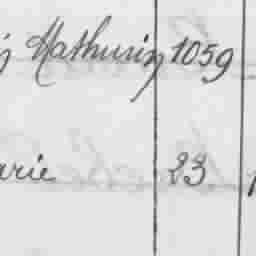 Mathurin 1059
arie 23